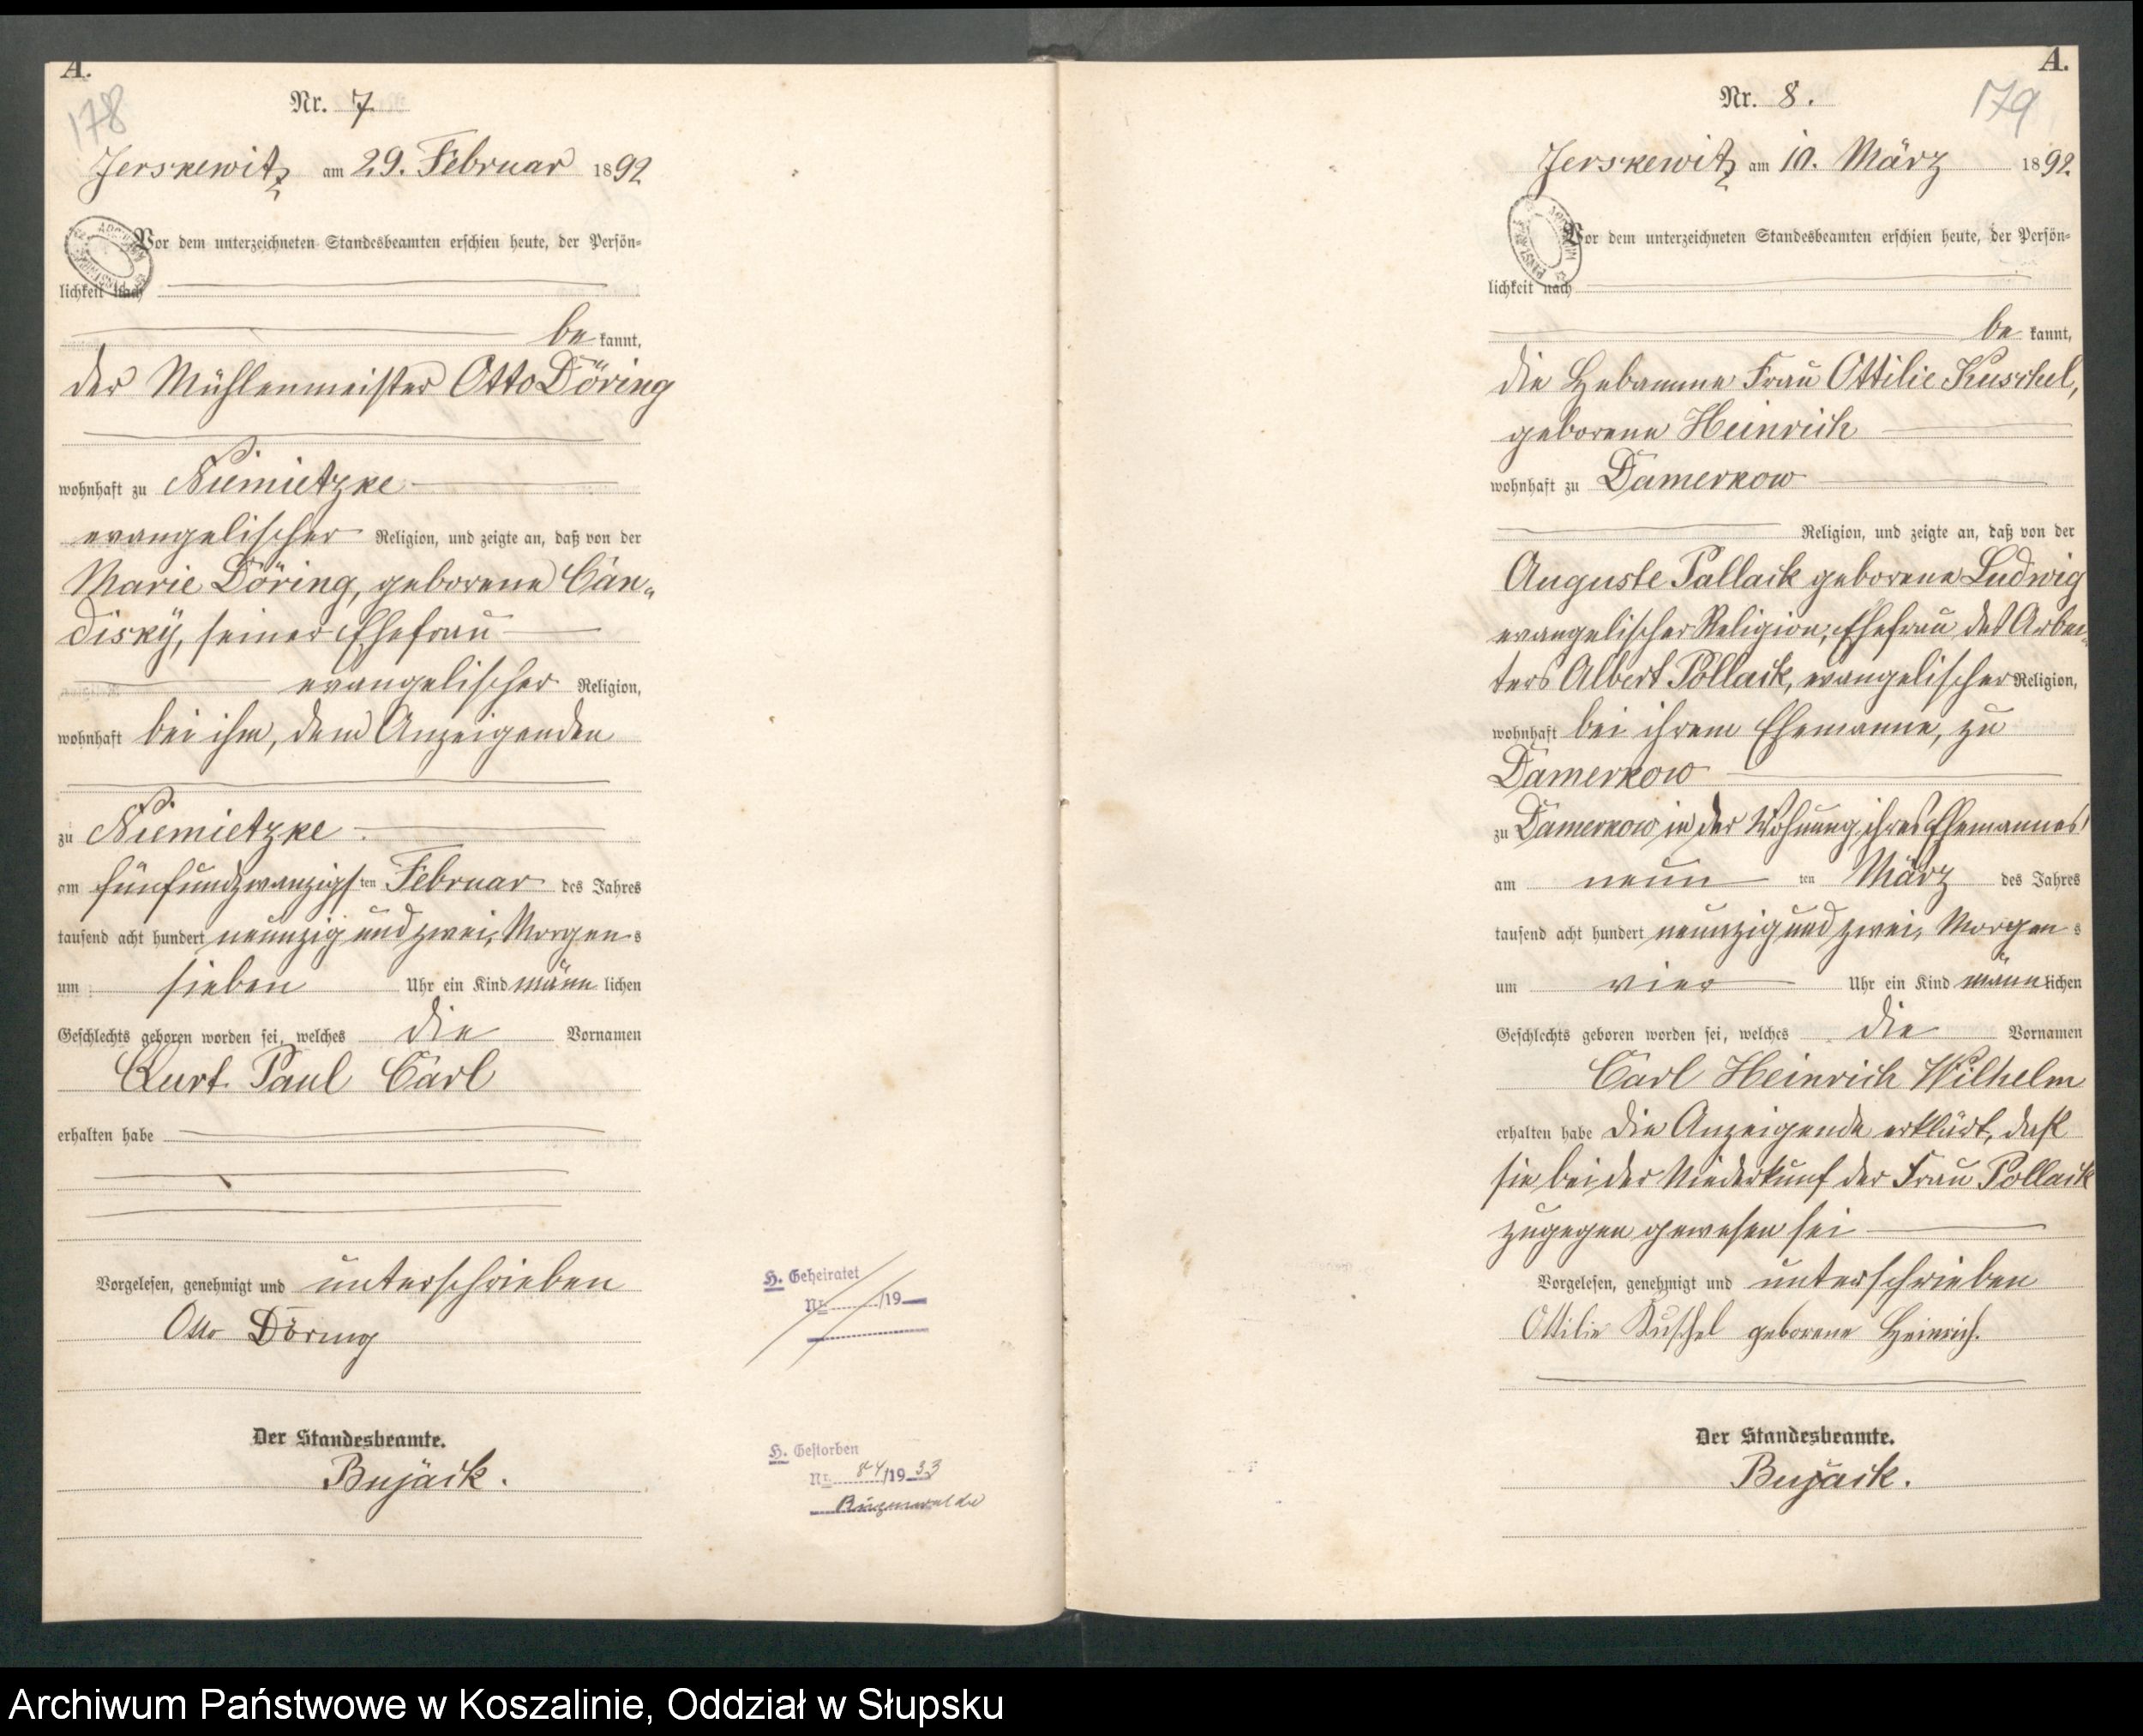 A.
178
Nr. 7.
Jerskewitz am 29. Februar 1892
Vor dem unterzeichneten Standesbeamten erschien heute, der Persön-
lichkeit nach
be kannt,
der Mühlenmeister Otto Döring
wohnhaft zu Niemietzke
evangelischer Religion, und zeigte an, daß von der
Marie Döring, geborene Can-
disky, seiner Ehefrau
evangelischer Religion,
wohnhaft bei ihm, dem Anzeigenden
zu Niemietzke
am fünfundzwanzigsten Februar des Jahres
tausend acht hundert neunzig und zwei, Morgens
um sieben Uhr ein Kind männlichen
Geschlechts geboren worden sei, welches die Vornamen
Curt Paul Carl
erhalten habe
Vorgelesen, genehmigt und unterschrieben
Otto Döring
Der Standesbeamte.
Bujack.
H. Geheiratet
Nr. /19
H. Gestorben
Nr. 84/1933
Rügenwalde
A.
179
Nr. 8.
Jerskewitz am 10. März 1892.
Vor dem unterzeichneten Standesbeamten erschien heute, der Persön-
lichkeit nach
be kannt,
die Hebamme Frau Ottilie Kuschel,
geborene Heinrich
wohnhaft zu Damerkow
Religion, und zeigte an, daß von der
Auguste Pallack geborene Ludwig
evangelischer Religion, Ehefrau des Arbei-
ters Albert Pollack, evangelischer Religion,
wohnhaft bei ihrem Ehemanne, zu
Damerkow
zu Damerkow in der Wohnung ihres Ehemannes
am neunten März des Jahres
tausend acht hundert neunzig und zwei, Morgens
um vier Uhr ein Kind männlichen
Geschlechts geboren worden sei, welches die Vornamen
Carl Heinrich Wilhelm
erhalten habe die Anzeigende erklärt, daß
sie bei der Niederkunf der Frau Pollack
zugegen gewesen sei
Vorgelesen, genehmigt und unterschrieben
Ottilie Kuschel geborene Heinrich.
Der Standesbeamte.
Bujack.
Archiwum Państwowe w Koszalinie, Oddział w Słupsku